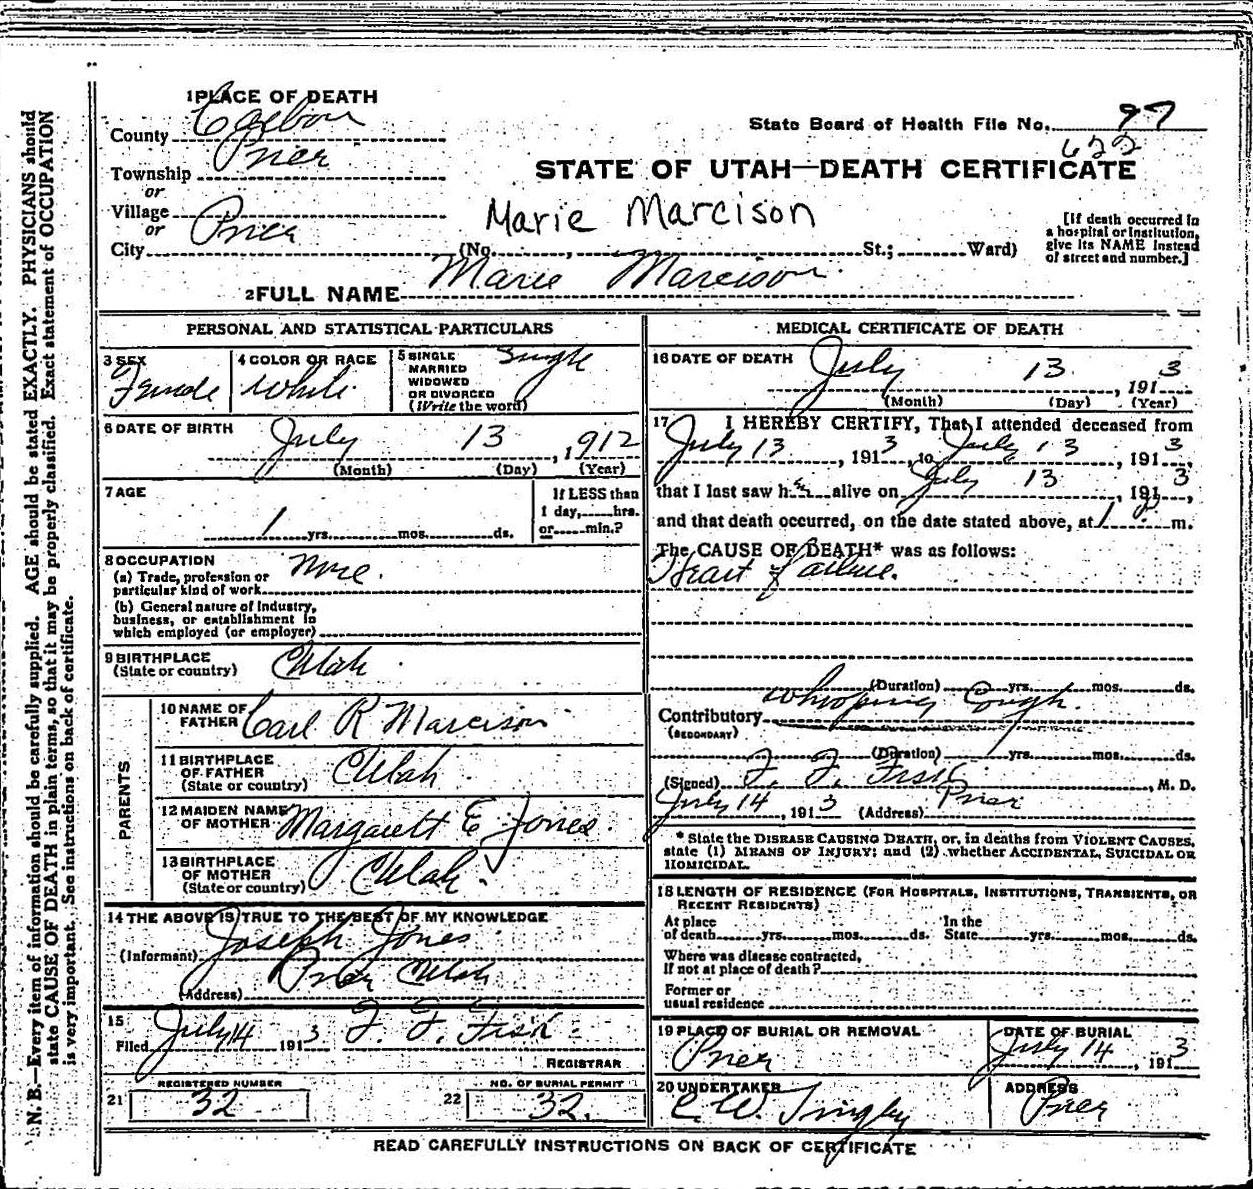 1 PLACE OF DEATH
County Carbon
State Board of Health File No. 97
622
Township Price
STATE OF UTAH—DEATH CERTIFICATE
or
Village
or
City Price (No. , St.; Ward)
Marie Marcison
[If death occurred in
a hospital or institution,
give its NAME instead
of street and number.]
2 FULL NAME Marie Marcison
PERSONAL AND STATISTICAL PARTICULARS
3 SEX Female
4 COLOR OR RACE White
5 SINGLE
MARRIED
WIDOWED
OR DIVORCED
(Write the word) Single
6 DATE OF BIRTH July 13, 1912
(Month) (Day) (Year)
7 AGE
1 yrs. mos. ds.
If LESS than
1 day, hrs.
or min.?
8 OCCUPATION
(a) Trade, profession or
particular kind of work None.
(b) General nature of industry,
business, or establishment in
which employed (or employer)
9 BIRTHPLACE
(State or country) Utah
PARENTS
10 NAME OF
FATHER Carl R Marcison
11 BIRTHPLACE
OF FATHER
(State or country) Utah
12 MAIDEN NAME
OF MOTHER Margarett E Jones.
13 BIRTHPLACE
OF MOTHER
(State or country) Utah.
14 THE ABOVE IS TRUE TO THE BEST OF MY KNOWLEDGE
(Informant) Joseph Jones
(Address) Price Utah
15
Filed July 14 1913 F. F. Fisk.
REGISTRAR
REGISTERED NUMBER
21 32
NO. OF BURIAL PERMIT
22 32.
MEDICAL CERTIFICATE OF DEATH
16 DATE OF DEATH July 13, 1913
(Month) (Day) (Year)
17 I HEREBY CERTIFY, That I attended deceased from
July 13, 1913, to July 13, 1913,
that I last saw her alive on July 13, 1913,
and that death occurred, on the date stated above, at 1 P. m.
The CAUSE OF DEATH* was as follows:
Heart failure.
(Duration) yrs. mos. ds.
Contributory Whooping Cough.
(SECONDARY)
(Duration) yrs. mos. ds.
(Signed) F. F. Fisk, M. D.
July 14, 1913 (Address) Price
* State the DISEASE CAUSING DEATH, or, in deaths from VIOLENT CAUSES,
state (1) MEANS OF INJURY; and (2) whether ACCIDENTAL, SUICIDAL OR
HOMICIDAL.
18 LENGTH OF RESIDENCE (FOR HOSPITALS, INSTITUTIONS, TRANSIENTS, OR
RECENT RESIDENTS)
At place In the
of death yrs. mos. ds. State yrs. mos. ds.
Where was disease contracted,
If not at place of death?
Former or
usual residence
19 PLACE OF BURIAL OR REMOVAL
Price
DATE OF BURIAL
July 14, 1913
20 UNDERTAKER
C. W.
ADDRESS
Price
READ CAREFULLY INSTRUCTIONS ON BACK OF CERTIFICATE
N. B.—Every item of information should be carefully supplied. AGE should be stated EXACTLY. PHYSICIANS should
state CAUSE OF DEATH in plain terms, so that it may be properly classified. Exact statement of OCCUPATION
is very important. See instructions on back of certificate.